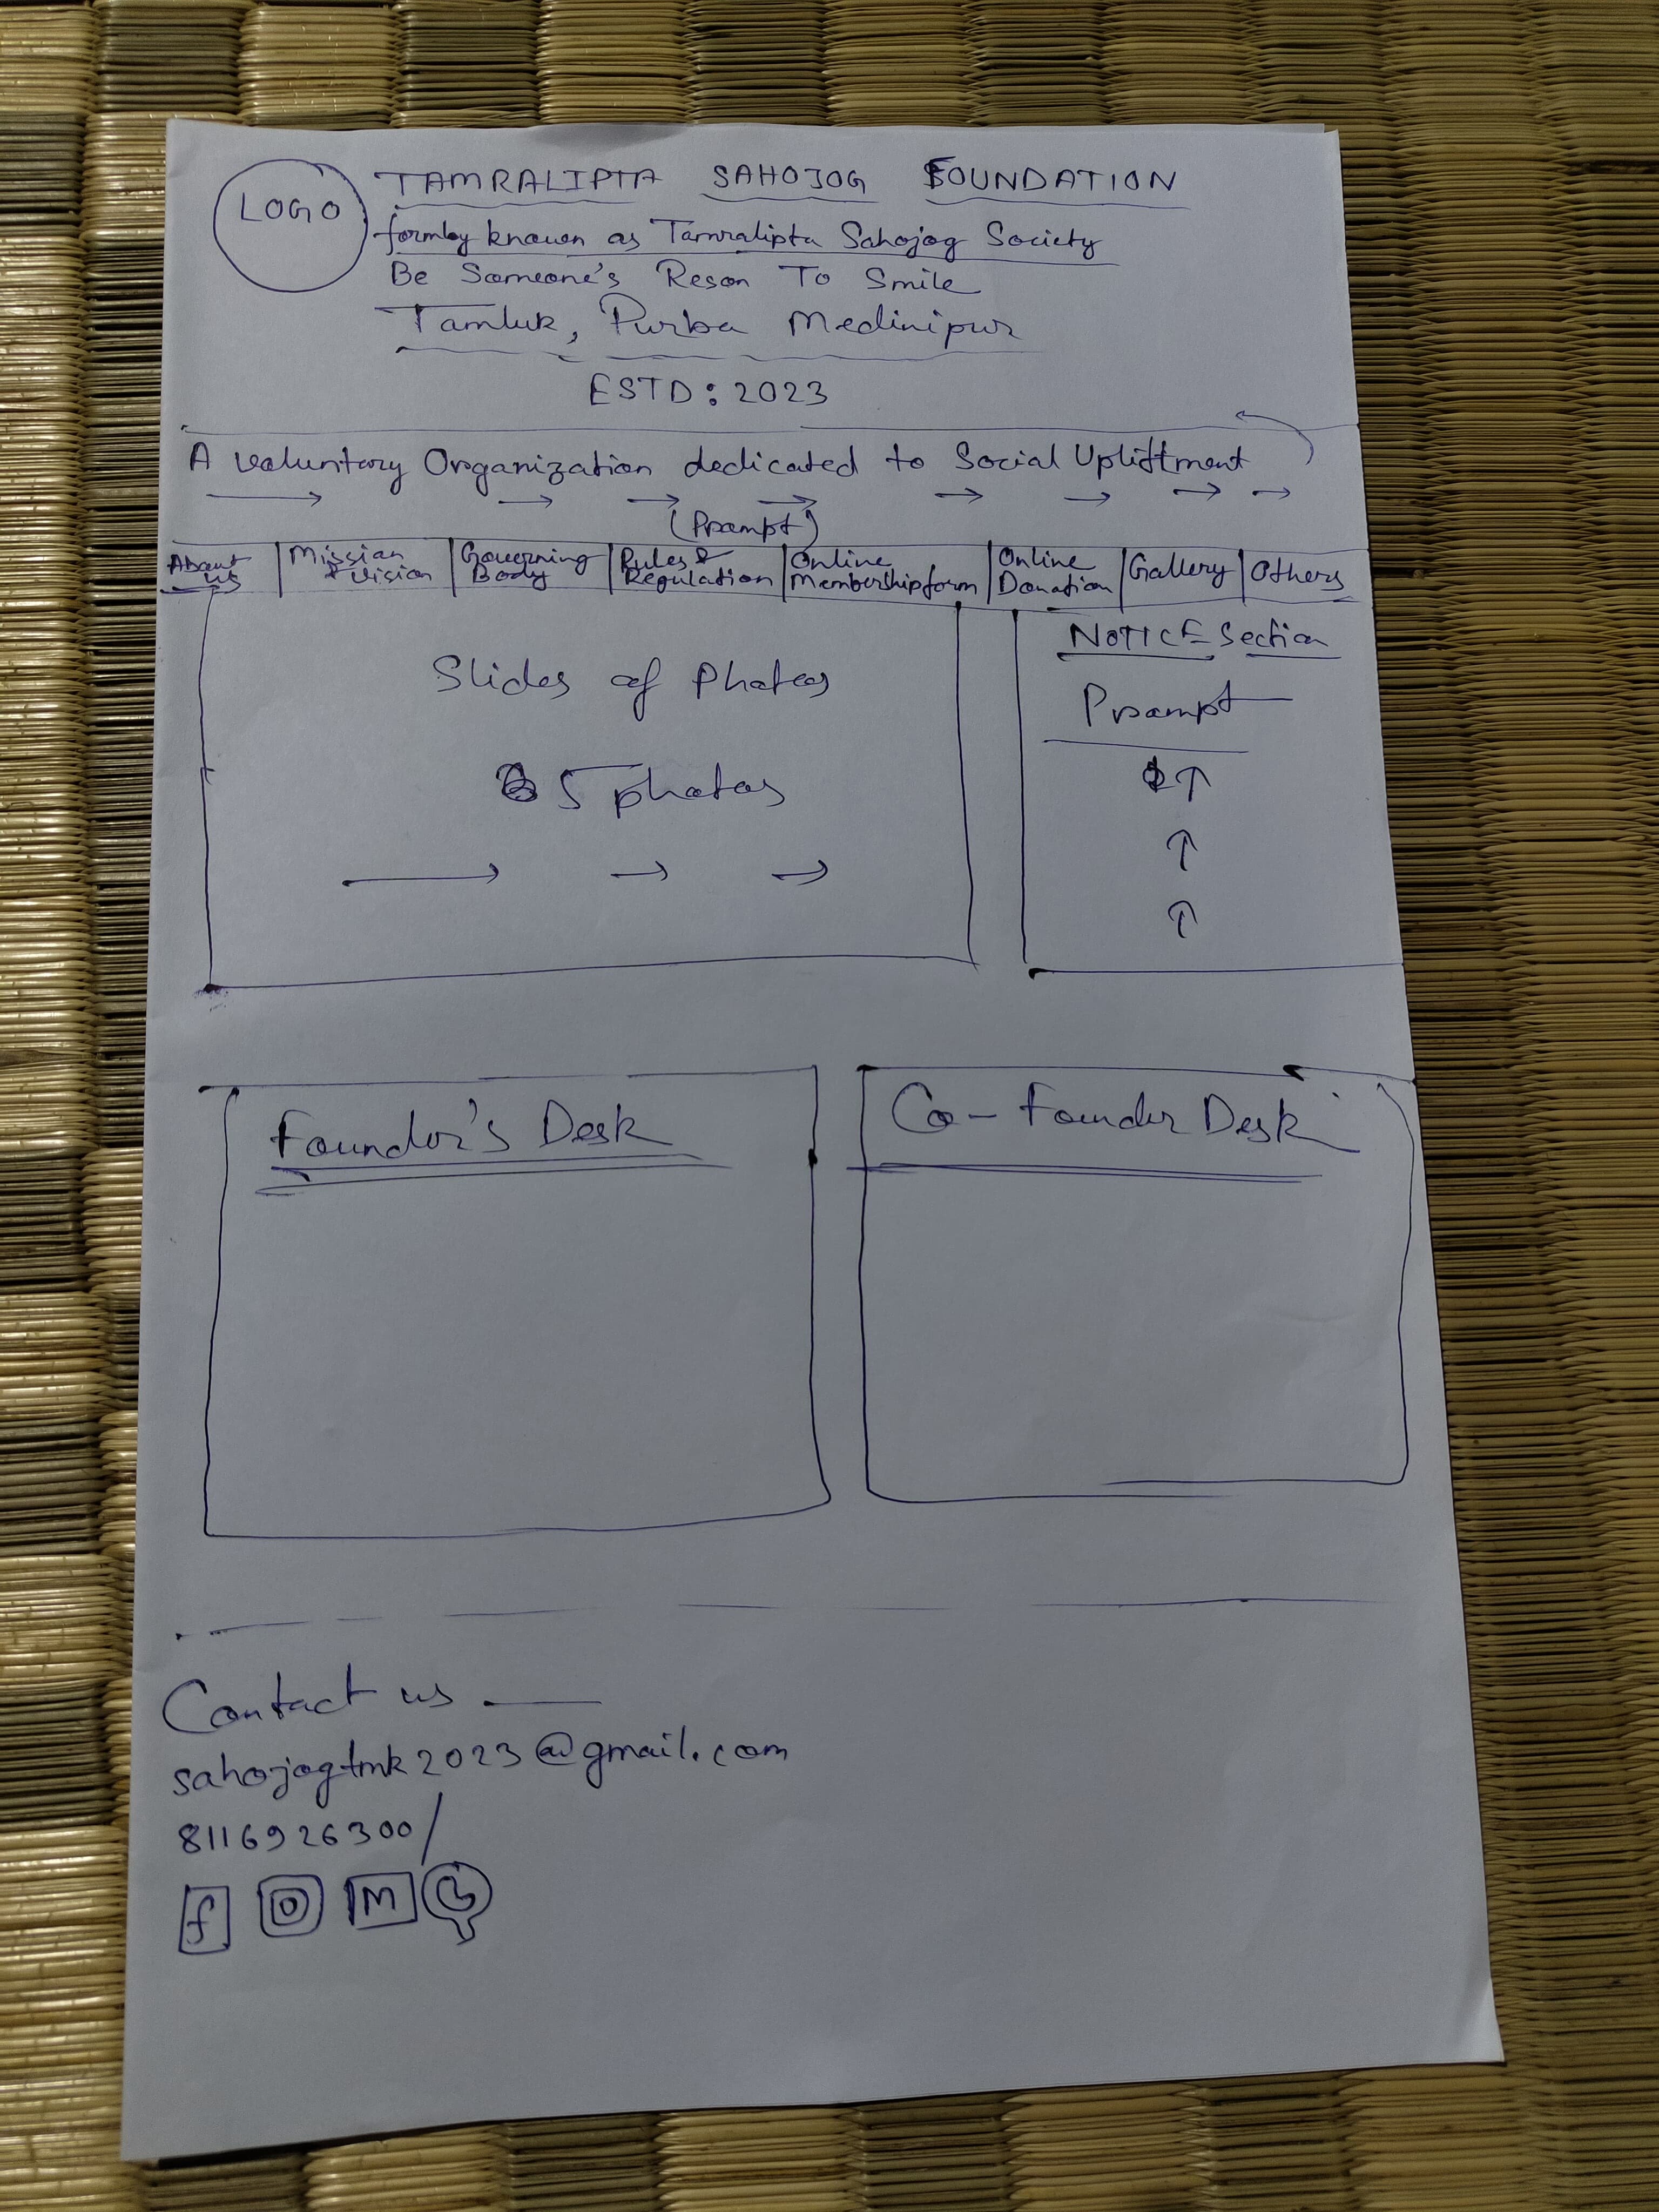 LOGO
TAMRALIPTA SAHOJOG FOUNDATION
formby known as Tamralipta Sahojog Society
Be Someone's Reson To Smile
Tamluk, Purba Medinipur
ESTD: 2023
A voluntary Organization dedicated to Social Upliftment
(Prompt)
About us
Mission & vision
Governing Body
Rules & Regulation
Online Membership form
Online Donation
Gallery
Others
Slides of Photos
5 photos
NOTICE Section
Prompt
Founder's Desk
Co-Founder Desk
Contact us
sahojogtmk2023@gmail.com
8116926300/
f M